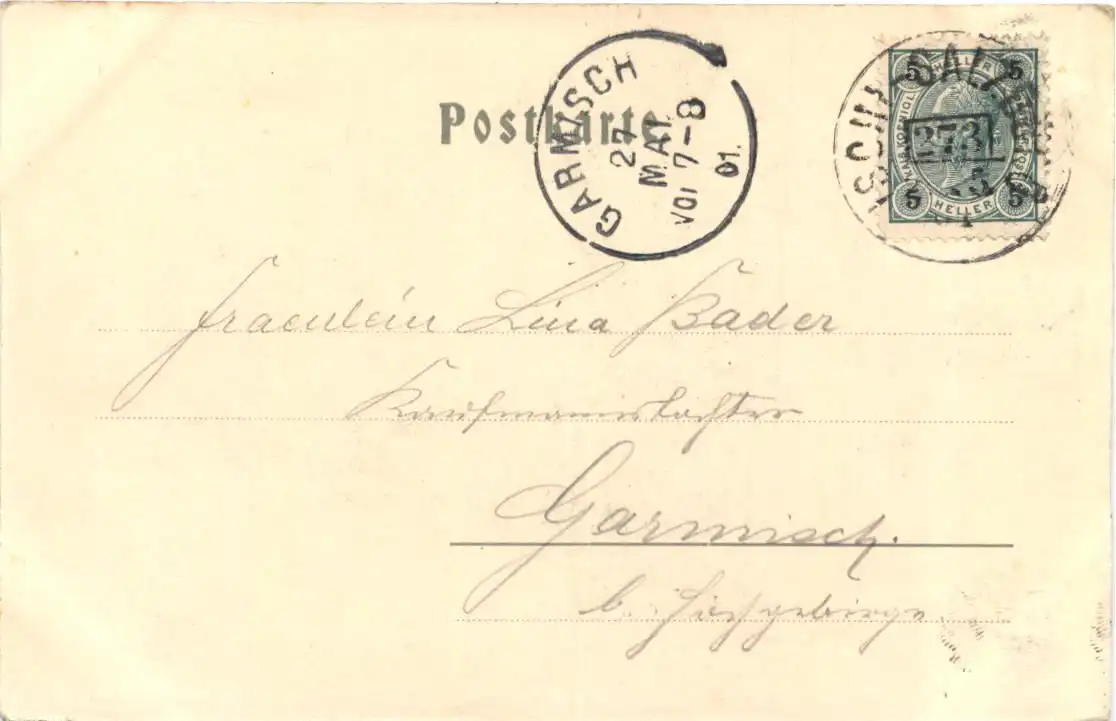 Postkarte
GARMISCH
27
MAI
VOR 7-8
01.
5 HELLER 5
273
5 HELLER 5
ISCHL-SALZBURG
Fraeulein Lina Bader
Kaufmannstochter
Garmisch.
b.